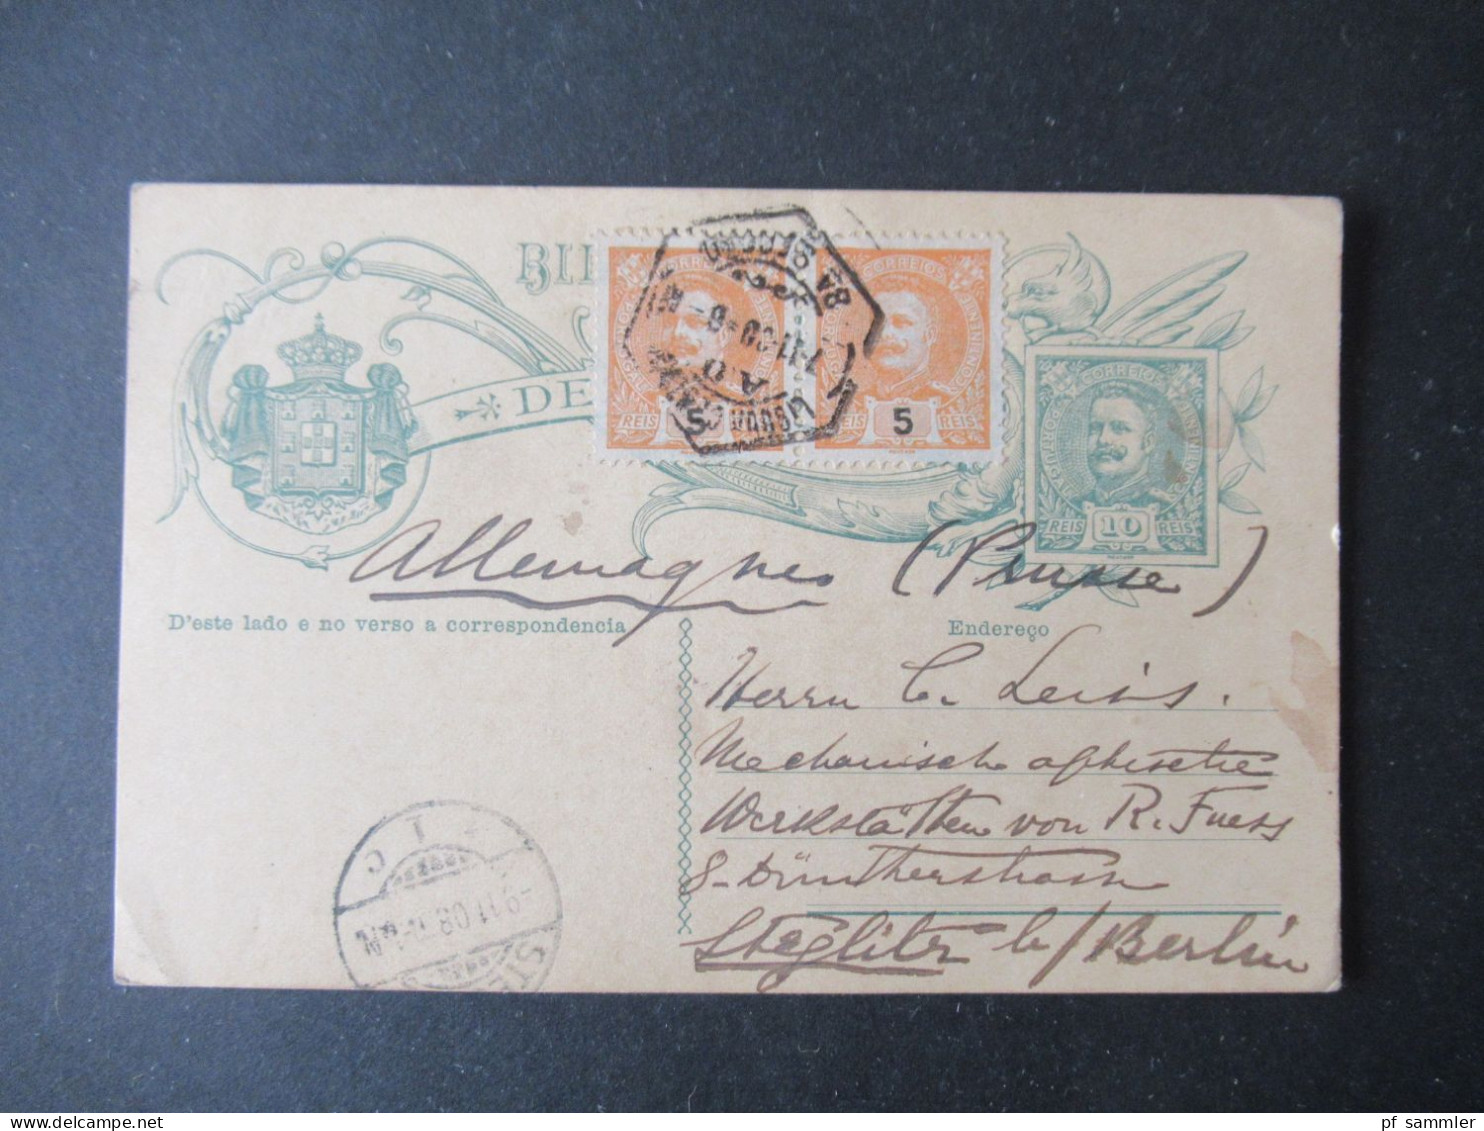 BI
DE
CORREIOS
PORTUGAL
CONTINENTE
REIS 5
CORREIOS
CONTINENTE
REIS 5 REIS
LISBOA CENTRAL
8A SECCÃO
A.U.
CORREIOS
PORTUGAL
CONTINENTE
REIS 10 REIS
Allemagne (Prusse)
D'este lado e no verso a correspondencia
Endereço
Herrn C. Leiss.
Mechanische optische
Werkstätten von R. Fuess
8-Düntherstrasse
Steglitz b/Berlin
STE
9.11.08
pf sammler